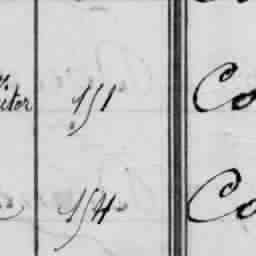 iter 151 Co
154 Co